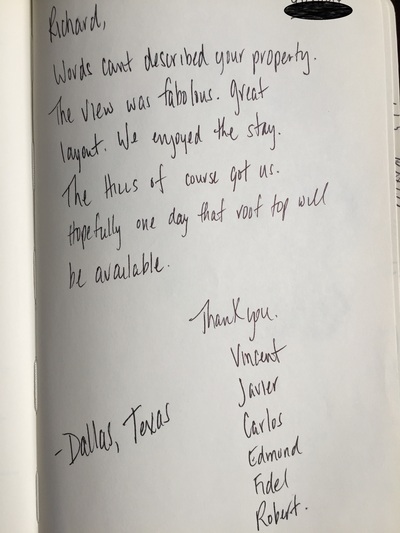 Richard,
Words cant described your property.
The view was fabolous. Great
layout. We enjoyed the stay.
The Hills of course got us.
Hopefully one day that roof top will
be available.
Thank you.
Vincent
Javier
Carlos
Edmund
Fidel
Robert.
-Dallas, Texas